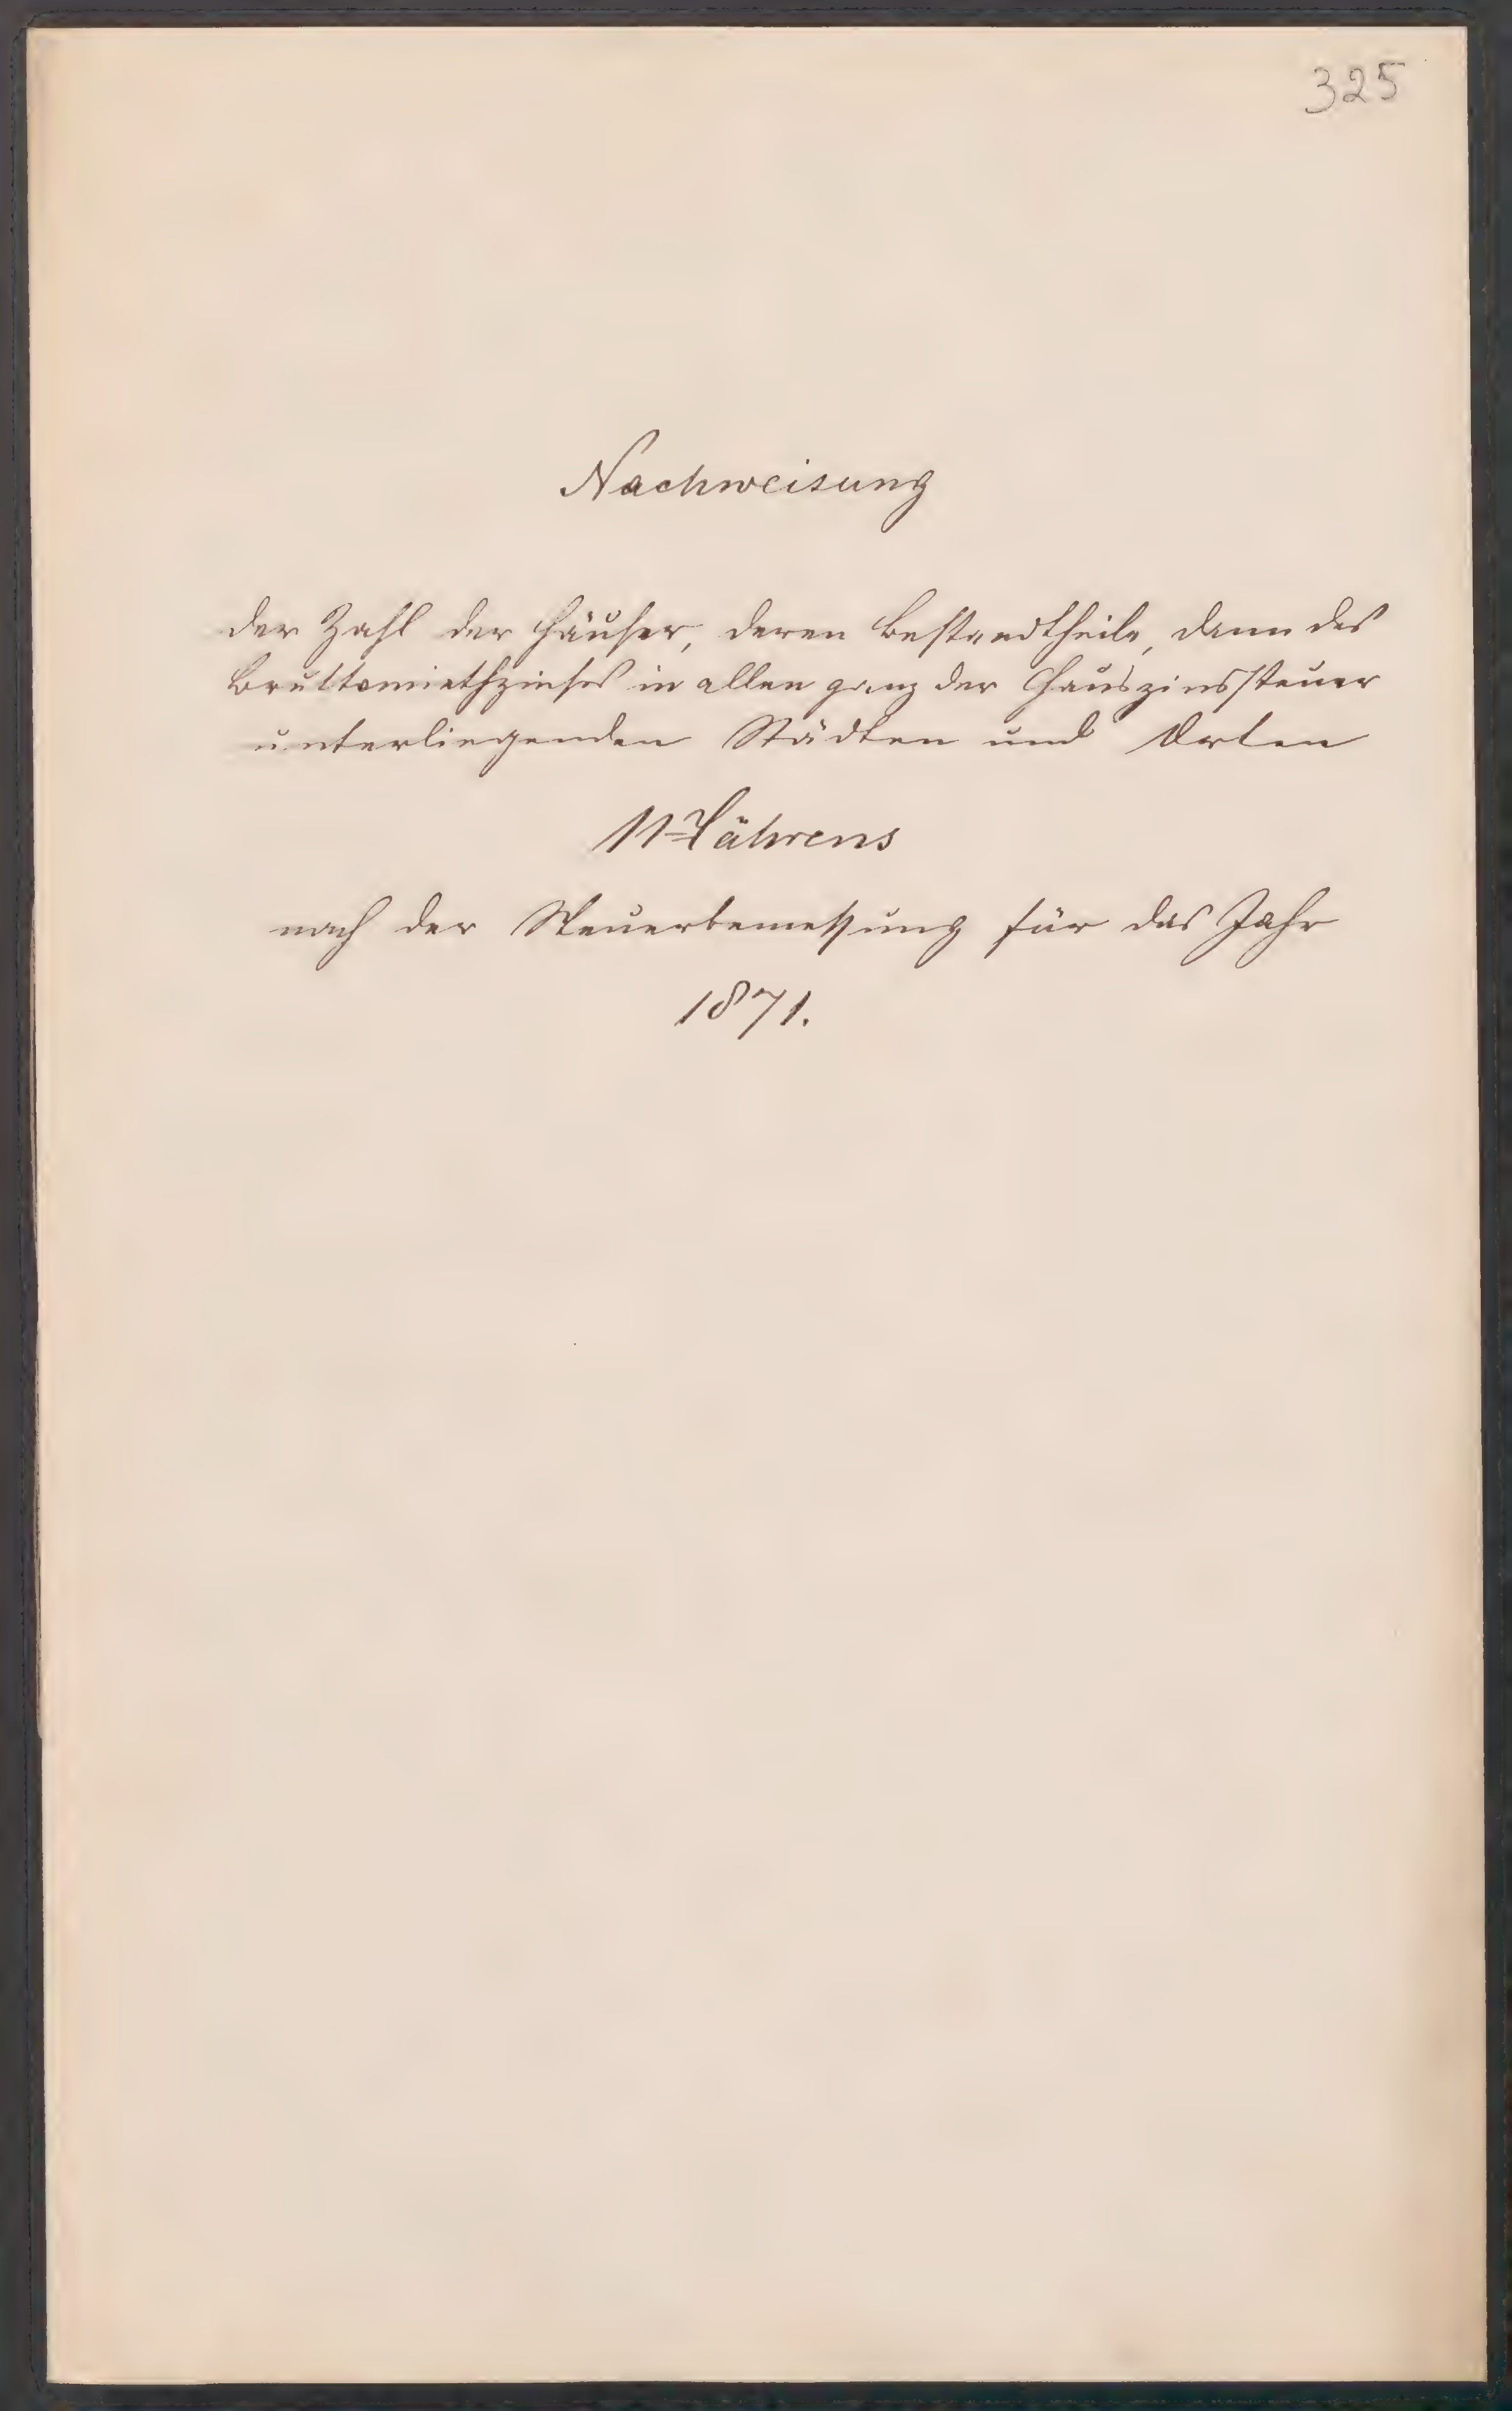 325
Nachweisung
der Zahl der Häuser, deren Bestandtheile, dann des
Bruttomiethzinses in allen ganz der Hauszinssteuer
unterliegenden Städten und Orten
Mährens
nach der Steuerbemessung für das Jahr
1871.